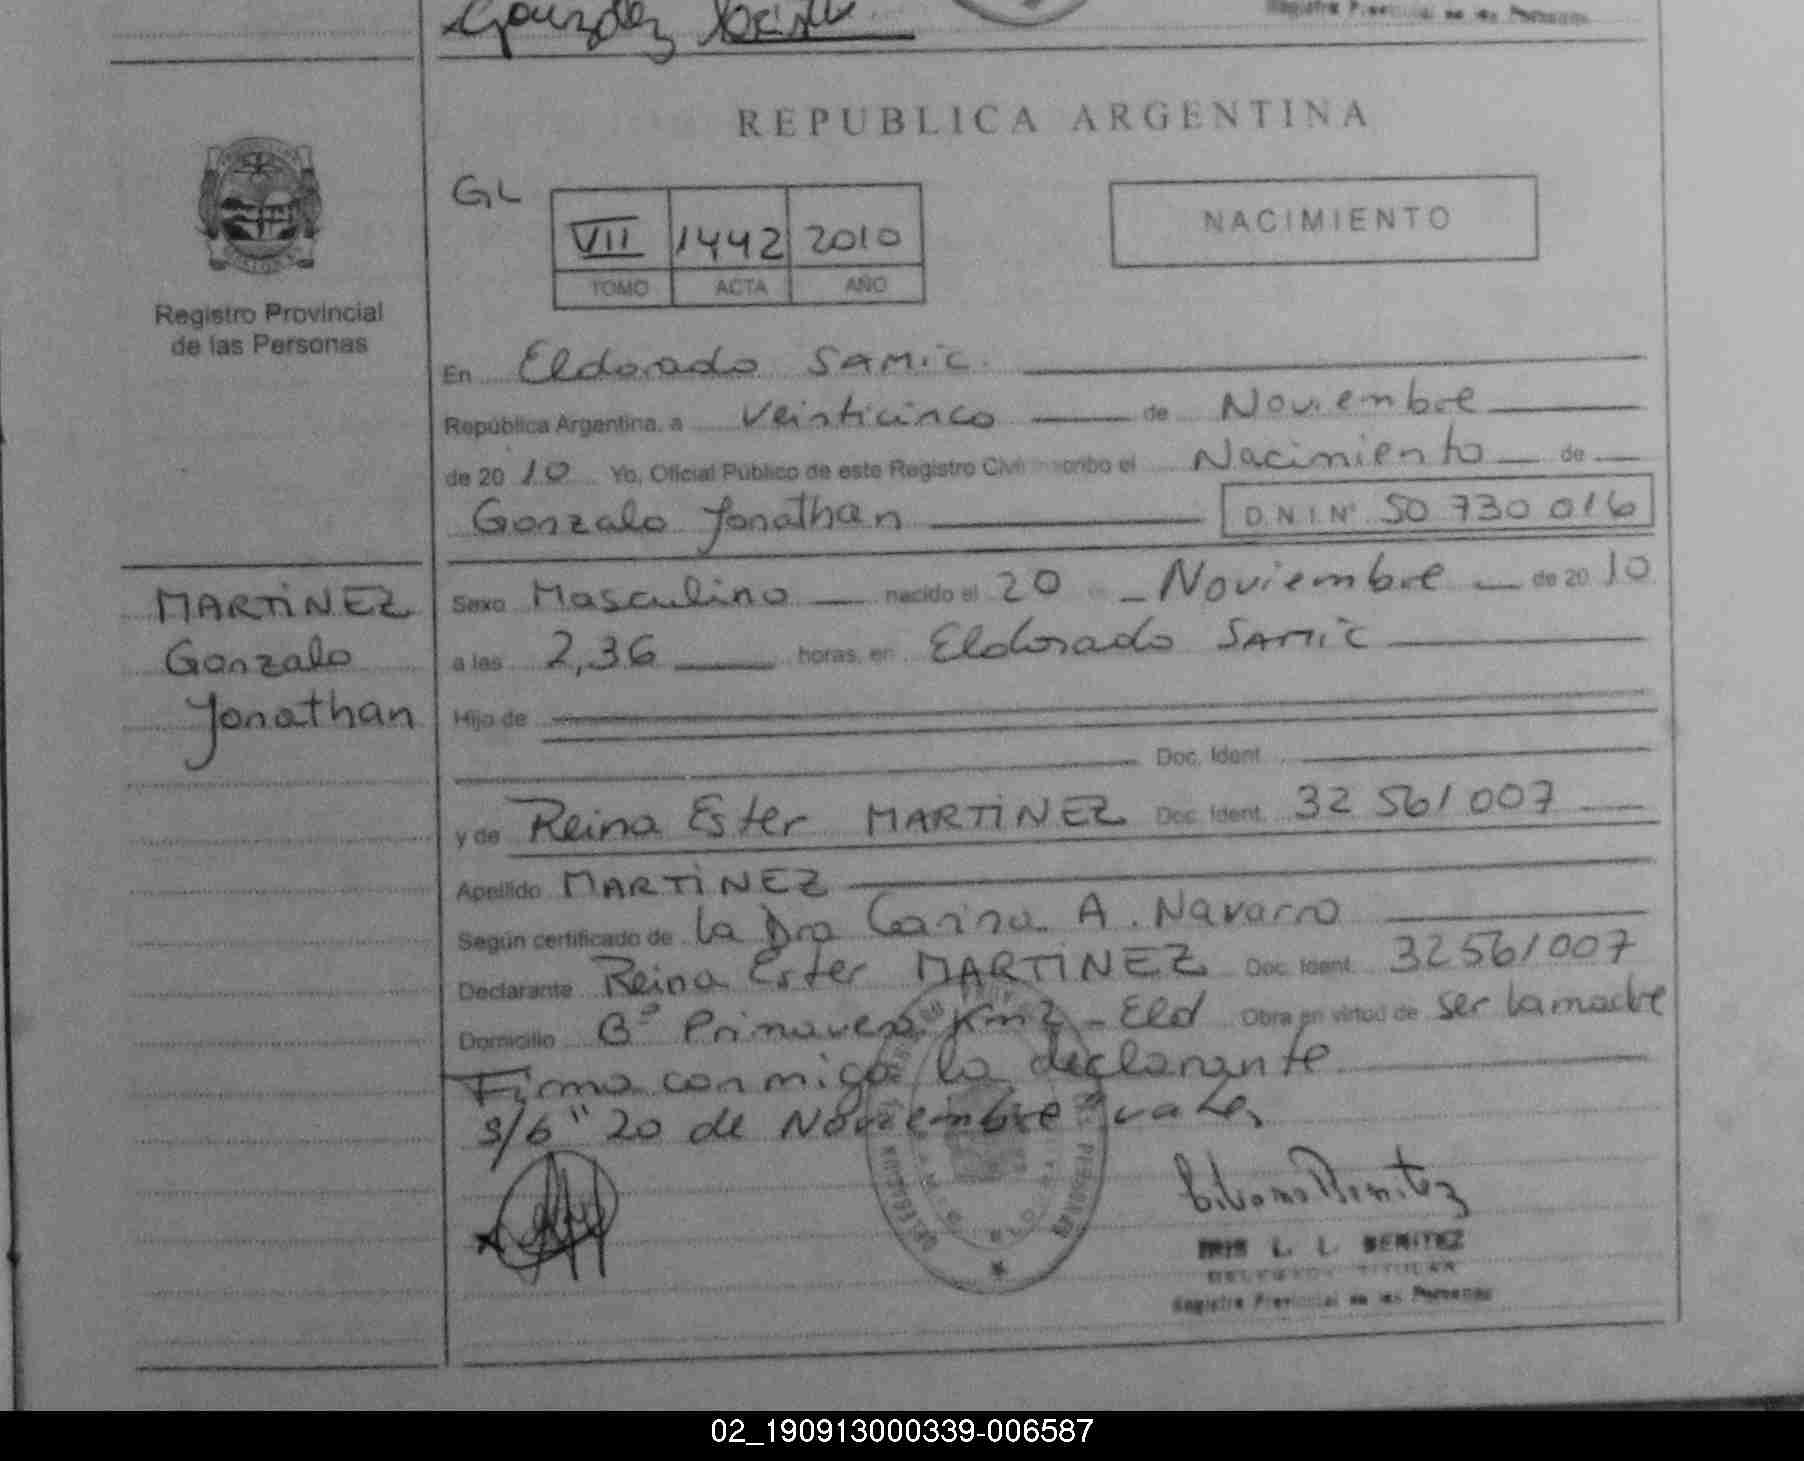 González
Registro Provincial de las Personas
REPUBLICA ARGENTINA
GL
VII 1442 2010
TOMO ACTA AÑO
NACIMIENTO
Registro Provincial
de las Personas
En Eldorado SAMIC
República Argentina, a veinticinco de Noviembre
de 2010 Yo, Oficial Público de este Registro Civil inscribo el Nacimiento de
Gonzalo Jonathan D N I Nº 50 730 016
MARTINEZ
Gonzalo
Jonathan
Sexo Masculino nacido el 20 de Noviembre de 2010
a las 2,36 horas, en Eldorado SAMIC
Hijo de
Doc. Ident.
y de Reina Ester MARTINEZ Doc. Ident. 32 561 007
Apellido MARTINEZ
Según certificado de la Dra Carina A. Navarro
Declarante Reina Ester MARTINEZ Doc. Ident. 32561007
Domicilio Bº Primavera Km2 - Eld Obra en virtud de ser la madre
Firma conmigo la declarante
S/b "20 de Noviembre" vale,
DELEGACION
PERSONAS
Benitez
IRIS L. L. BENITEZ
DELEGADA TITULAR
Registro Provincial de las Personas
02_190913000339-006587